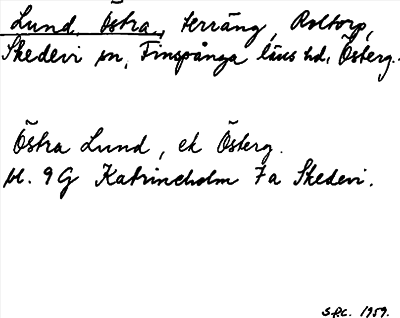 Lund, Östra, terräng, Roltorp,
Skedevi sn, Finspånga läns hd, Österg.
Östra Lund, ek Österg.
bl. 9G Katrineholm 7a Skedevi.
1959.